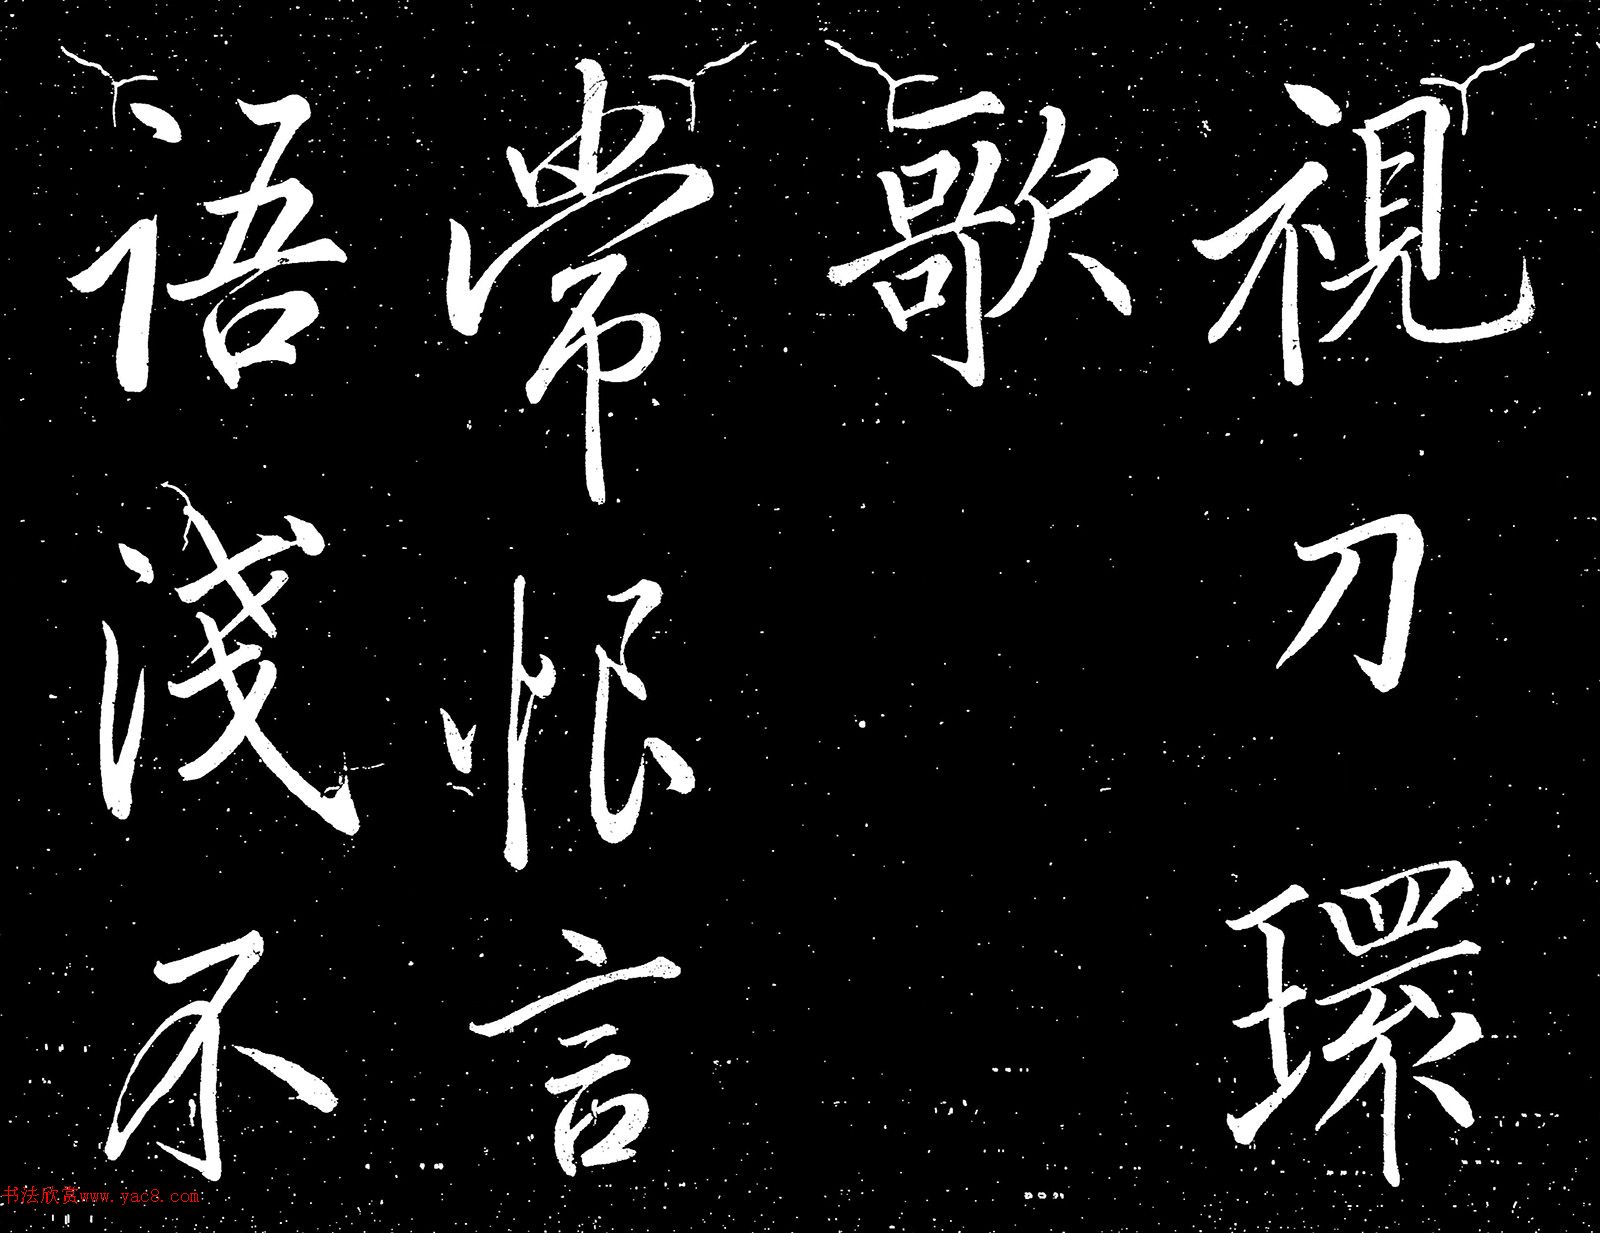 視刀環
歌
常恨言
語淺不
书法欣赏www.yac8.com